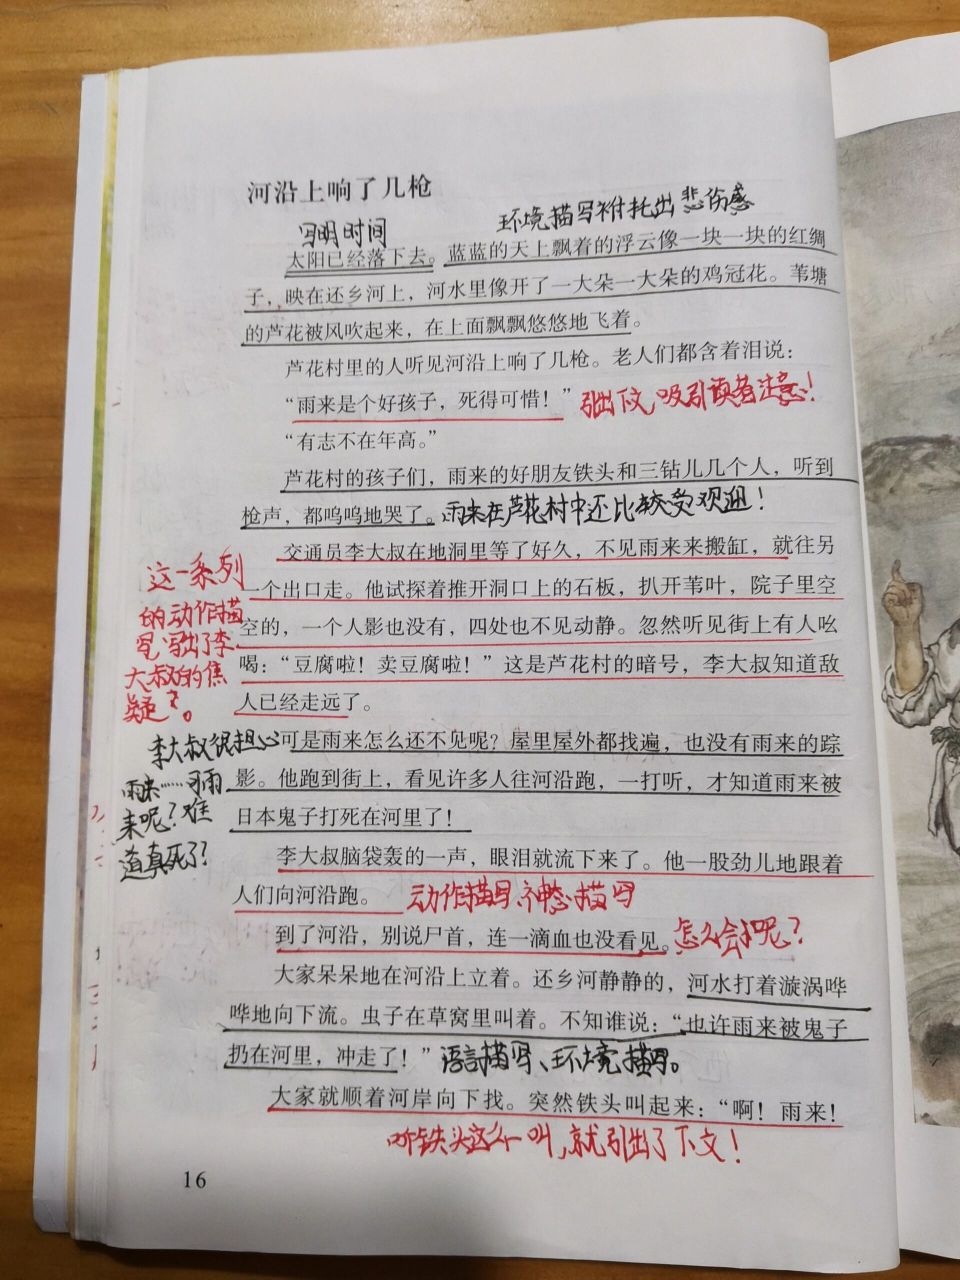 河沿上响了几枪
写明时间
环境描写衬托出悲伤感
太阳已经落下去。蓝蓝的天上飘着的浮云像一块一块的红绸
子，映在还乡河上，河水里像开了一大朵一大朵的鸡冠花。苇塘
的芦花被风吹起来，在上面飘飘悠悠地飞着。
芦花村里的人听见河沿上响了几枪。老人们都含着泪说：
“雨来是个好孩子，死得可惜！”引出下文，吸引读者注意！
“有志不在年高。”
芦花村的孩子们，雨来的好朋友铁头和三钻儿几个人，听到
枪声，都呜呜地哭了。雨来在芦花村中还比较受欢迎！
交通员李大叔在地洞里等了好久，不见雨来来搬缸，就往另
一个出口走。他试探着推开洞口上的石板，扒开苇叶，院子里空
空的，一个人影也没有，四处也不见动静。忽然听见街上有人吆
喝：“豆腐啦！卖豆腐啦！”这是芦花村的暗号，李大叔知道敌
人已经走远了。
这一系列
的动作描
写写出了李
大叔的焦
疑。
可是雨来怎么还不见呢？屋里屋外都找遍，也没有雨来的踪
影。他跑到街上，看见许多人往河沿跑，一打听，才知道雨来被
日本鬼子打死在河里了！
李大叔很担心
雨来……可雨
来呢？难
道真死了？
李大叔脑袋轰的一声，眼泪就流下来了。他一股劲儿地跟着
人们向河沿跑。动作描写、神态描写
到了河沿，别说尸首，连一滴血也没看见。怎么会呢？
大家呆呆地在河沿上立着。还乡河静静的，河水打着漩涡哗
哗地向下流。虫子在草窝里叫着。不知谁说：“也许雨来被鬼子
扔在河里，冲走了！”语言描写、环境描写。
大家就顺着河岸向下找。突然铁头叫起来：“啊！雨来！
听铁头这么一叫，就引出了下文！
16